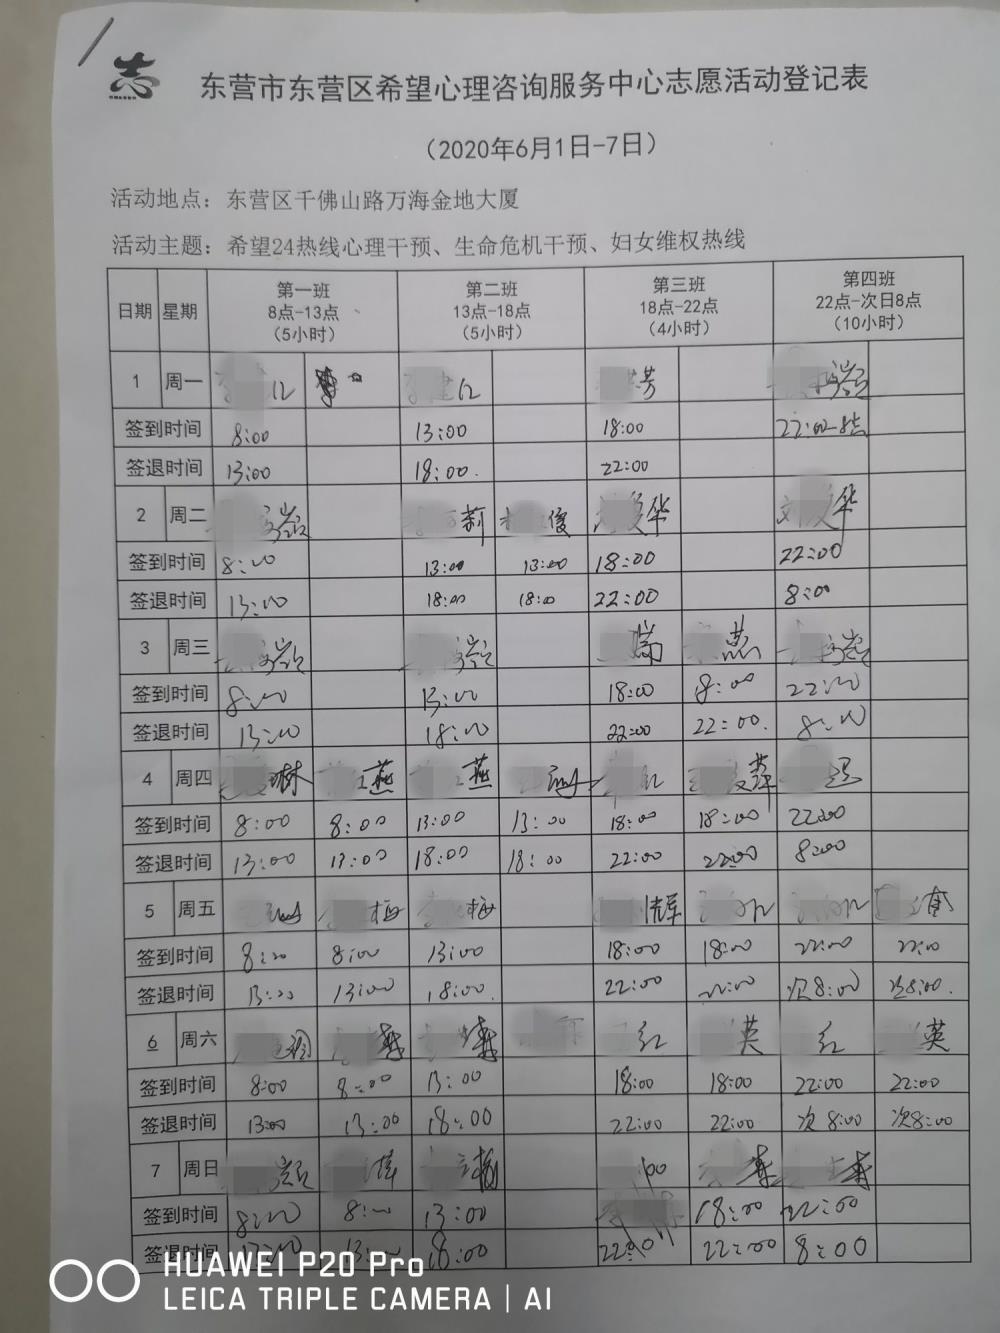 志
东营市东营区希望心理咨询服务中心志愿活动登记表
（2020年6月1日-7日）
活动地点：东营区千佛山路万海金地大厦
活动主题：希望24热线心理干预、生命危机干预、妇女维权热线
日期 星期 第一班 8点-13点 （5小时） 第二班 13点-18点 （5小时） 第三班 18点-22点 （4小时） 第四班 22点-次日8点 （10小时）
1 周一 芳
签到时间 8:00 13:00 18:00 22:00-8点
签退时间 13:00 18:00. 22:00
2 周二 莉 俊 华 华
签到时间 8:00 13:00 13:00 18:00 22:00
签退时间 13:00 18:00 18:00 22:00 8:00
3 周三 瑞 燕
签到时间 8:00 13:00 18:00 8:00 22:00
签退时间 13:00 18:00 22:00 22:00. 8:00
4 周四 琳 燕 燕 红 萍
签到时间 8:00 8:00 13:00 13:00 18:00 18:00 22:00
签退时间 13:00 13:00 18:00 18:00 22:00 22:00 8:00
5 周五 梅 梅
签到时间 8:00 8:00 13:00 18:00 18:00 22:00 22:00
签退时间 13:00 13:00 18:00. 22:00 22:00 次8:00 次8:00.
6 周六 红 英 红 英
签到时间 8:00 8:00 13:00 18:00 18:00 22:00 22:00
签退时间 13:00 13:00 18:00 22:00 22:00 次8:00 次8:00
7 周日
签到时间 8:00 8:00 13:00 18:00 22:00
签退时间 13:00 13:00 18:00 22:00 22:00 8:00
HUAWEI P20 Pro
LEICA TRIPLE CAMERA | AI